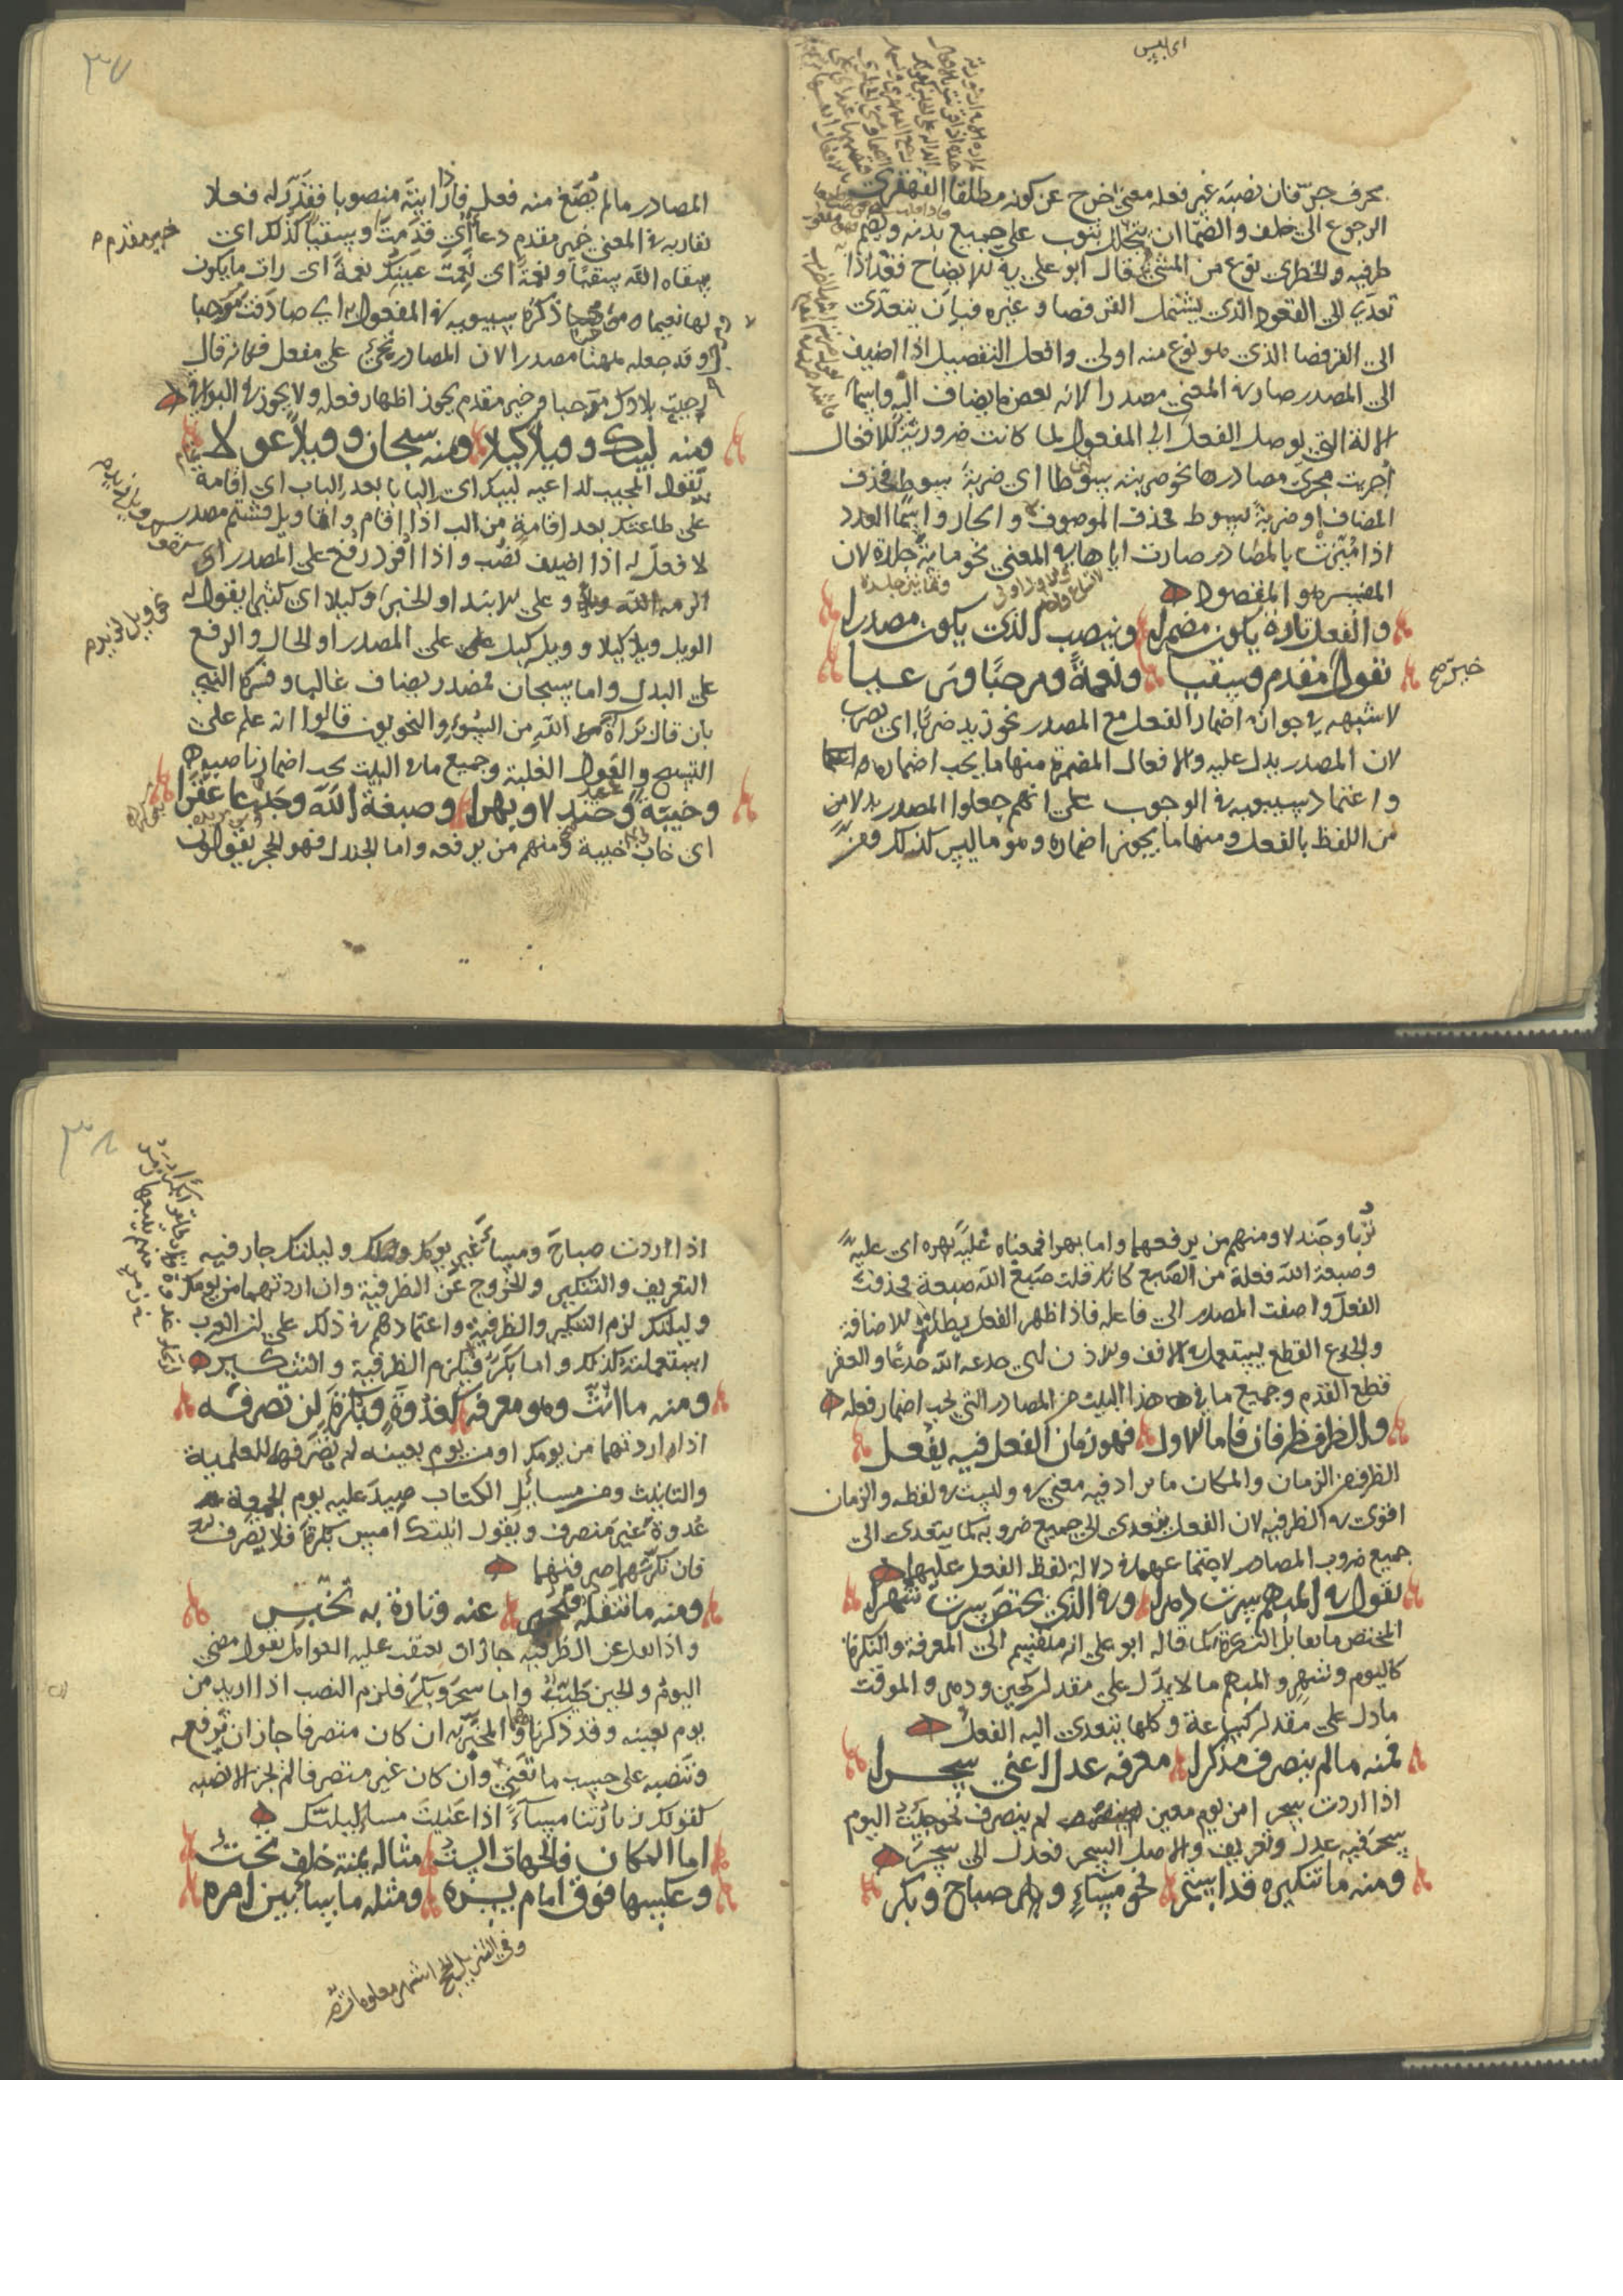 اى ليس
بحرف جرّ فان نصبته غير فعله معنى اخرج عن كونه مطلقا القهقرى
الرجوع الى خلف والصمّا ان يتجلل بثوب على جميع بدنه ويضم
طرفيه والخطرى نوع من المشى قال ابو على فى الايضاح فقد اذا
تعدّى الى القعود الذى يشتمل القرفصا وغيره فبان يتعدّى
الى القرفصا الذى هو نوع منه اولى وافعل التفضيل اذا اضيف
الى المصدر صار فى المعنى مصدرا لانه بعض ما يضاف اليه واسما
الالة التى توصل الفعل الى المفعول لما كانت ضرورية للافعال
أجريت مجرى مصادرها نحو ضربته سوطا اى ضربة سوط فحذف
المضاف او ضربة بسوط فحذف الموصوف والجار واسما العدد
اذا مُيّزت بالمصادر صارت اياها فى المعنى نحو ماية جلدة لان
المفسر هو المقصود
والفعل تارة يكون مضمرا وينصب الذى يكون مصدرا
تقول مقدم وسقيا ونعمةً ومرحبًا ورعيا
خير
لا شبهه فى جواز اضمار الفعل مع المصدر نحو زيد ضربًا اى يضرب
لان المصدر يدل عليه والافعال المضمرة منها ما يجب اضماره
واعتماد سيبويه فى الوجوب على انهم جعلوا المصدر بدلا من
من اللفظ بالفعل ومنها ما يجوز اضماره وهو ما ليس كذلك ومن
٣٧
المصادر ما لم يُصَغ منه فعل فاذا رايته منصوبا فقدّر له فعلا
تقاربه فى المعنى خير مقدم دعا اى قدمت وسقيا كذلك اى
خير مقدم
سقاه الله سقيا ونعمة اى نَعِمَت عينك نعمةً اى رات ما يكون
لها نعيما ومرحبا ذكره سيبويه فى المفعول به اى صادفت مرحبا
وقد جعله ههنا مصدرا لان المصادر تجئ على مفعل فكانه قال
رحبت بلادك مرحبا وخير مقدم يجوز اظهار فعله ولا يجوز فى البواقى
ومنه لبيك وويلا كيلا ومنه سبحان وويلا عولا
يقول المجيب لداعيه لبيك اى البابا بعد الباب اى اقامة
على طاعتك بعد اقامة من الب اذا اقام واما ويل فشتم مصدر
لا فعل له اذا اضيف نُصب واذا افرد رفع على المصدر اى
الزمه الله ويلا وعلى الابتدا والخبر وكيلا اى كثيرا يقول له
الويل ويلا كيلا وويل كيل على المصدر او الحال والرفع
على البدل واما سبحان فمصدر يضاف غالبا وفسره النبى
بان قال براة الله من السوء والنحويون قالوا انه علم على
التسبيح والقول الغلبة وجميع ما فى البيت يجب اضمار ناصبه
وخيبة وجندلا وبهرا وصبغة الله وجدعا عقرا
اى خاب خيبة ومنهم من يرفعه واما الجندل فهو الحجر يقولون
تُربا وجَندلا ومنهم من يرفعهما واما بهرا فمعناه غلبة بهره اى غلبه
وصبغة الله فعلة من الصبغ كانك قلت صبغ الله صبغة فحذفت
الفعل واضفت المصدر الى فاعله فاذا ظهر الفعل بطلت الاضافة
والجدع القطع يستعمل فى الانف والاذن اى جدعه الله جدعا والعقر
قطع القدم وجميع ما فى هذا البيت من المصادر التى يجب اضمار فعله
والظرف ظرفان فاما الاول فهو زمان الفعل فيه يفعل
الظرف من الزمان والمكان ما يراد فيه معنى فى وليست فى لفظه والزمان
اقوى فى الظرفيه لان الفعل يتعدى الى جميع ضروبه كما يتعدى الى
جميع ضروب المصادر لاجتماعهما فى دلالة لفظ الفعل عليهما
تقول فى المبهم سرت دهرا وفى الذى يختص سرت شهرا
المختص ما يقابل النكرة كما قاله ابو على انه منقسم الى المعرفة والنكرة
كاليوم وشهرٍ والمبهم ما لا يدل على مقدار كحين ودهر والموقت
ما دل على مقدار كساعة وكلها يتعدى اليه الفعل
فمنه ما لم ينصرف مذكرا معرفه عدل اعنى سحرا
اذا اردت سحرا من يوم معين لم ينصرف نحو جئت اليوم
سحر ففيه عدل وتعريف والاصل السحر فعدل الى سحر
ومنه ما تنكيره قد استمر نحو مساءٍ وصباح وبكر
٣٨
اذا اردت صباح ومساء غير يومك وليلتك جاز فيه
التعريف والتنكير والخروج عن الظرفية وان اردتهما من يومك
وليلتك لزم التنكير والظرفية واعتمادهم فى ذلك على ان العرب
استعملته كذلك واما بَكَر فيلزم الظرفية والتنكير
ومنه ما انثت وهو معرفه كغدوةٍ وبكرة لن تصرفه
اذا اردتهما من يومك او من يوم بعينه لم يصرفهما للعلمية
والتانيث ومن مسائل الكتاب صِيدَ عليه يوم الجمعة
غدوة غير منصرف وتقول اتيتك امس بكرة فلا يصرف
فان نكرتهما صرفتهما
ومنه ما تنقله فتخبر عنه وتارة به تخبر
واذا عدل عن الظرفية جاز ان يعتقب عليه العوامل تقول مضى
اليومُ والحين طيب واما سحر وبكر فلزم النصب اذا اريد من
يوم بعينه وقد ذكرناه والمخبر به ان كان متصرفا جاز ان ترفعه
وتنصبه على حسب ما تعنى وان كان غير متصرف لم يجز الا نصبه
كقولك زيارتنا مساءً اذا عنيت مساء ليلتك
اما المكان فالجهات الست مثاله يمنة خلف تحت
وعكسها فوق امام يسره ومثله ما ساء بين امره
وفى التنزيل الحج اشهر معلومات